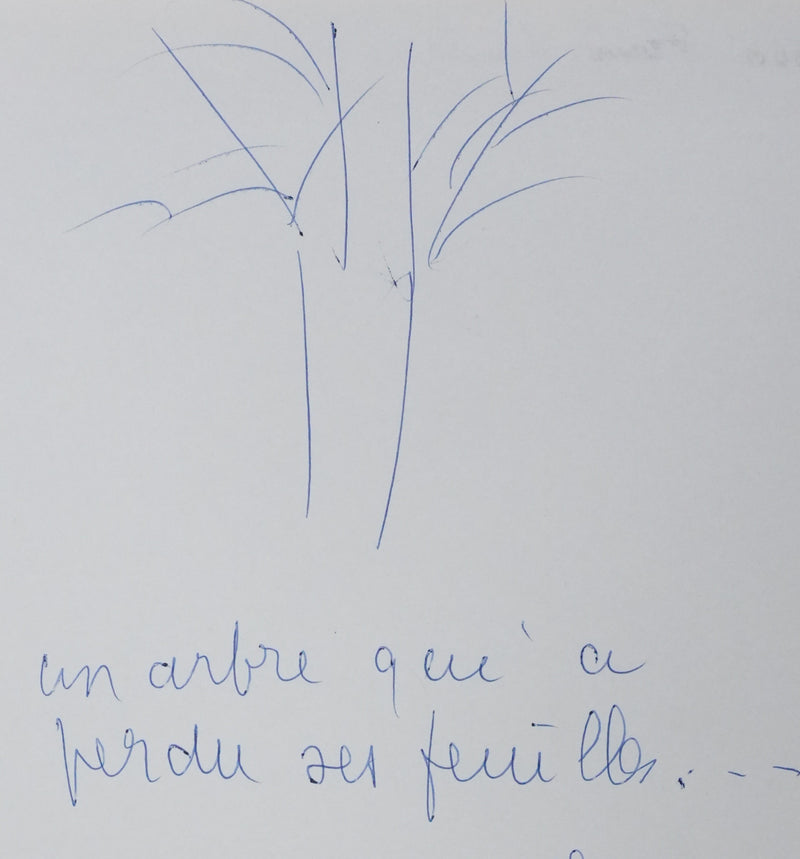 un arbre qui a
perdu ses feuilles. - -